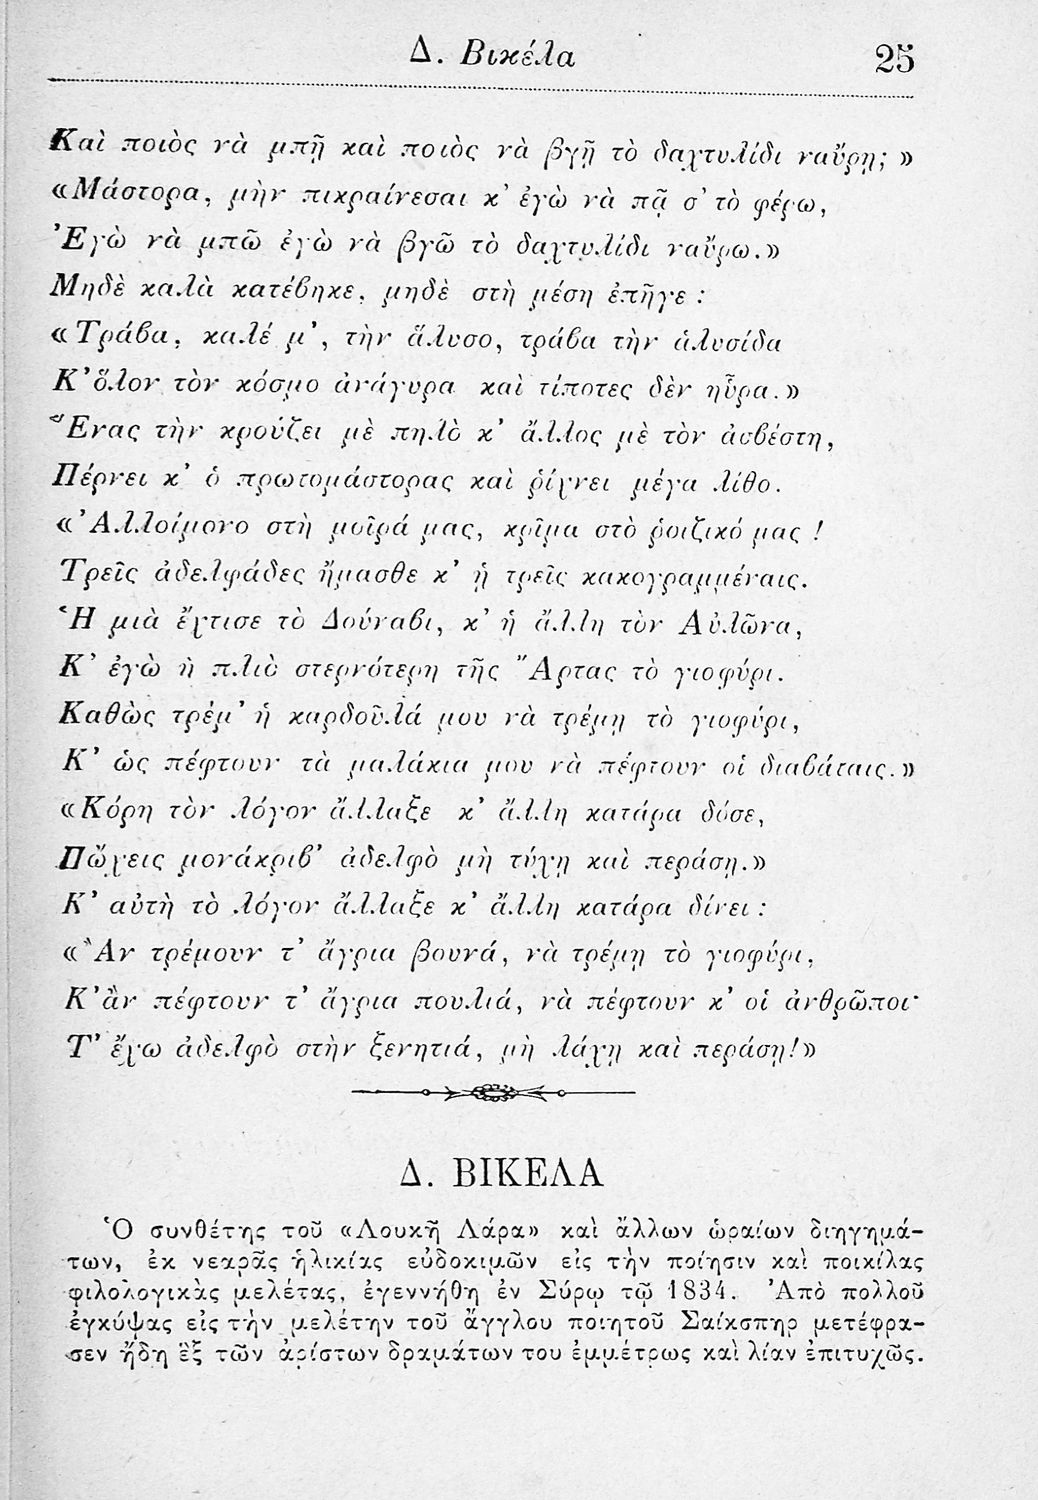 Δ. Βικέλα 25
Καὶ ποιὸς νὰ μπῇ καὶ ποιὸς νὰ βγῇ τὸ δαχτυλίδι ναὔρῃ; »
«Μάστορα, μὴν πικραίνεσαι κ' ἐγὼ νὰ πᾷ σ' τὸ φέρω,
Ἐγὼ νὰ μπῶ ἐγὼ νὰ βγῶ τὸ δαχτυλίδι ναὔρω.»
Μηδὲ καλὰ κατέβηκε, μηδὲ στὴ μέση ἐπῆγε :
«Τράβα, καλέ μ', τὴν ἅλυσο, τράβα τὴν ἁλυσίδα
Κ' ὅλον τὸν κόσμο ἀνάγυρα καὶ τίποτες δὲν ηὗρα.»
Ἕνας τὴν κρούζει μὲ πηλὸ κ' ἄλλος μὲ τὸν ἀσβέστη,
Πέρνει κ' ὁ πρωτομάστορας καὶ ῥίχνει μέγα λίθο.
«Ἀλλοίμονο στὴ μοῖρά μας, κρῖμα στὸ ῥοιζικό μας !
Τρεῖς ἀδελφάδες ἤμασθε κ' ᾑ τρεῖς κακογραμμέναις.
Ἡ μιὰ ἔχτισε τὸ Δούναβι, κ' ἡ ἄλλη τὸν Αὐλῶνα,
Κ' ἐγὼ ἡ πλιὸ στερνότερη τῆς Ἄρτας τὸ γιοφύρι.
Καθὼς τρέμ' ἡ καρδοῦλά μου νὰ τρέμῃ τὸ γιοφύρι,
Κ' ὡς πέφτουν τὰ μαλάκια μου νὰ πέφτουν οἱ διαβάταις.»
«Κόρη τὸν λόγον ἄλλαξε κ' ἄλλη κατάρα δόσε,
Πὤχεις μονάκριβ' ἀδελφὸ μὴ τύχῃ καὶ περάσῃ.»
Κ' αὐτὴ τὸ λόγον ἄλλαξε κ' ἄλλη κατάρα δίνει :
«Ἂν τρέμουν τ' ἄγρια βουνά, νὰ τρέμῃ τὸ γιοφύρι,
Κ' ἂν πέφτουν τ' ἄγρια πουλιά, νὰ πέφτουν κ' οἱ ἀνθρῶποι·
Τ' ἔχω ἀδελφὸ στὴν ξενητιά, μὴ λάχῃ καὶ περάσῃ!»
Δ. ΒΙΚΕΛΑ
Ὁ συνθέτης τοῦ «Λουκῆ Λάρα» καὶ ἄλλων ὡραίων διηγημά-
των, ἐκ νεαρᾶς ἡλικίας εὐδοκιμῶν εἰς τὴν ποίησιν καὶ ποικίλας
φιλολογικὰς μελέτας, ἐγεννήθη ἐν Σύρῳ τῷ 1834. Ἀπὸ πολλοῦ
ἐγκύψας εἰς τὴν μελέτην τοῦ ἄγγλου ποιητοῦ Σαίκσπηρ μετέφρα-
σεν ἤδη ἓξ τῶν ἀρίστων δραμάτων του ἐμμέτρως καὶ λίαν ἐπιτυχῶς.